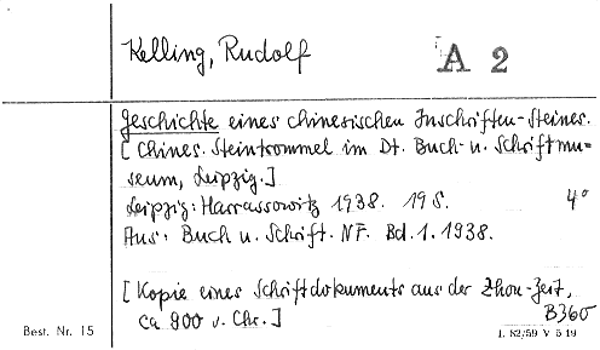 Kelling, Rudolf
A 2
Geschichte eines chinesischen Inschriften-Steines.
[Chines. Steintrommel im Dt. Buch- u. Schriftmu=
seum, Leipzig.]
Leipzig: Harrassowitz 1938. 19 S. 4°
Aus: Buch u. Schrift. NF. Bd. 1. 1938.
[Kopie eines Schriftdokuments aus der Zhou-Zeit,
ca 800 v. Chr.]
B360
Best. Nr. 15
1. 82/59 V 5 19